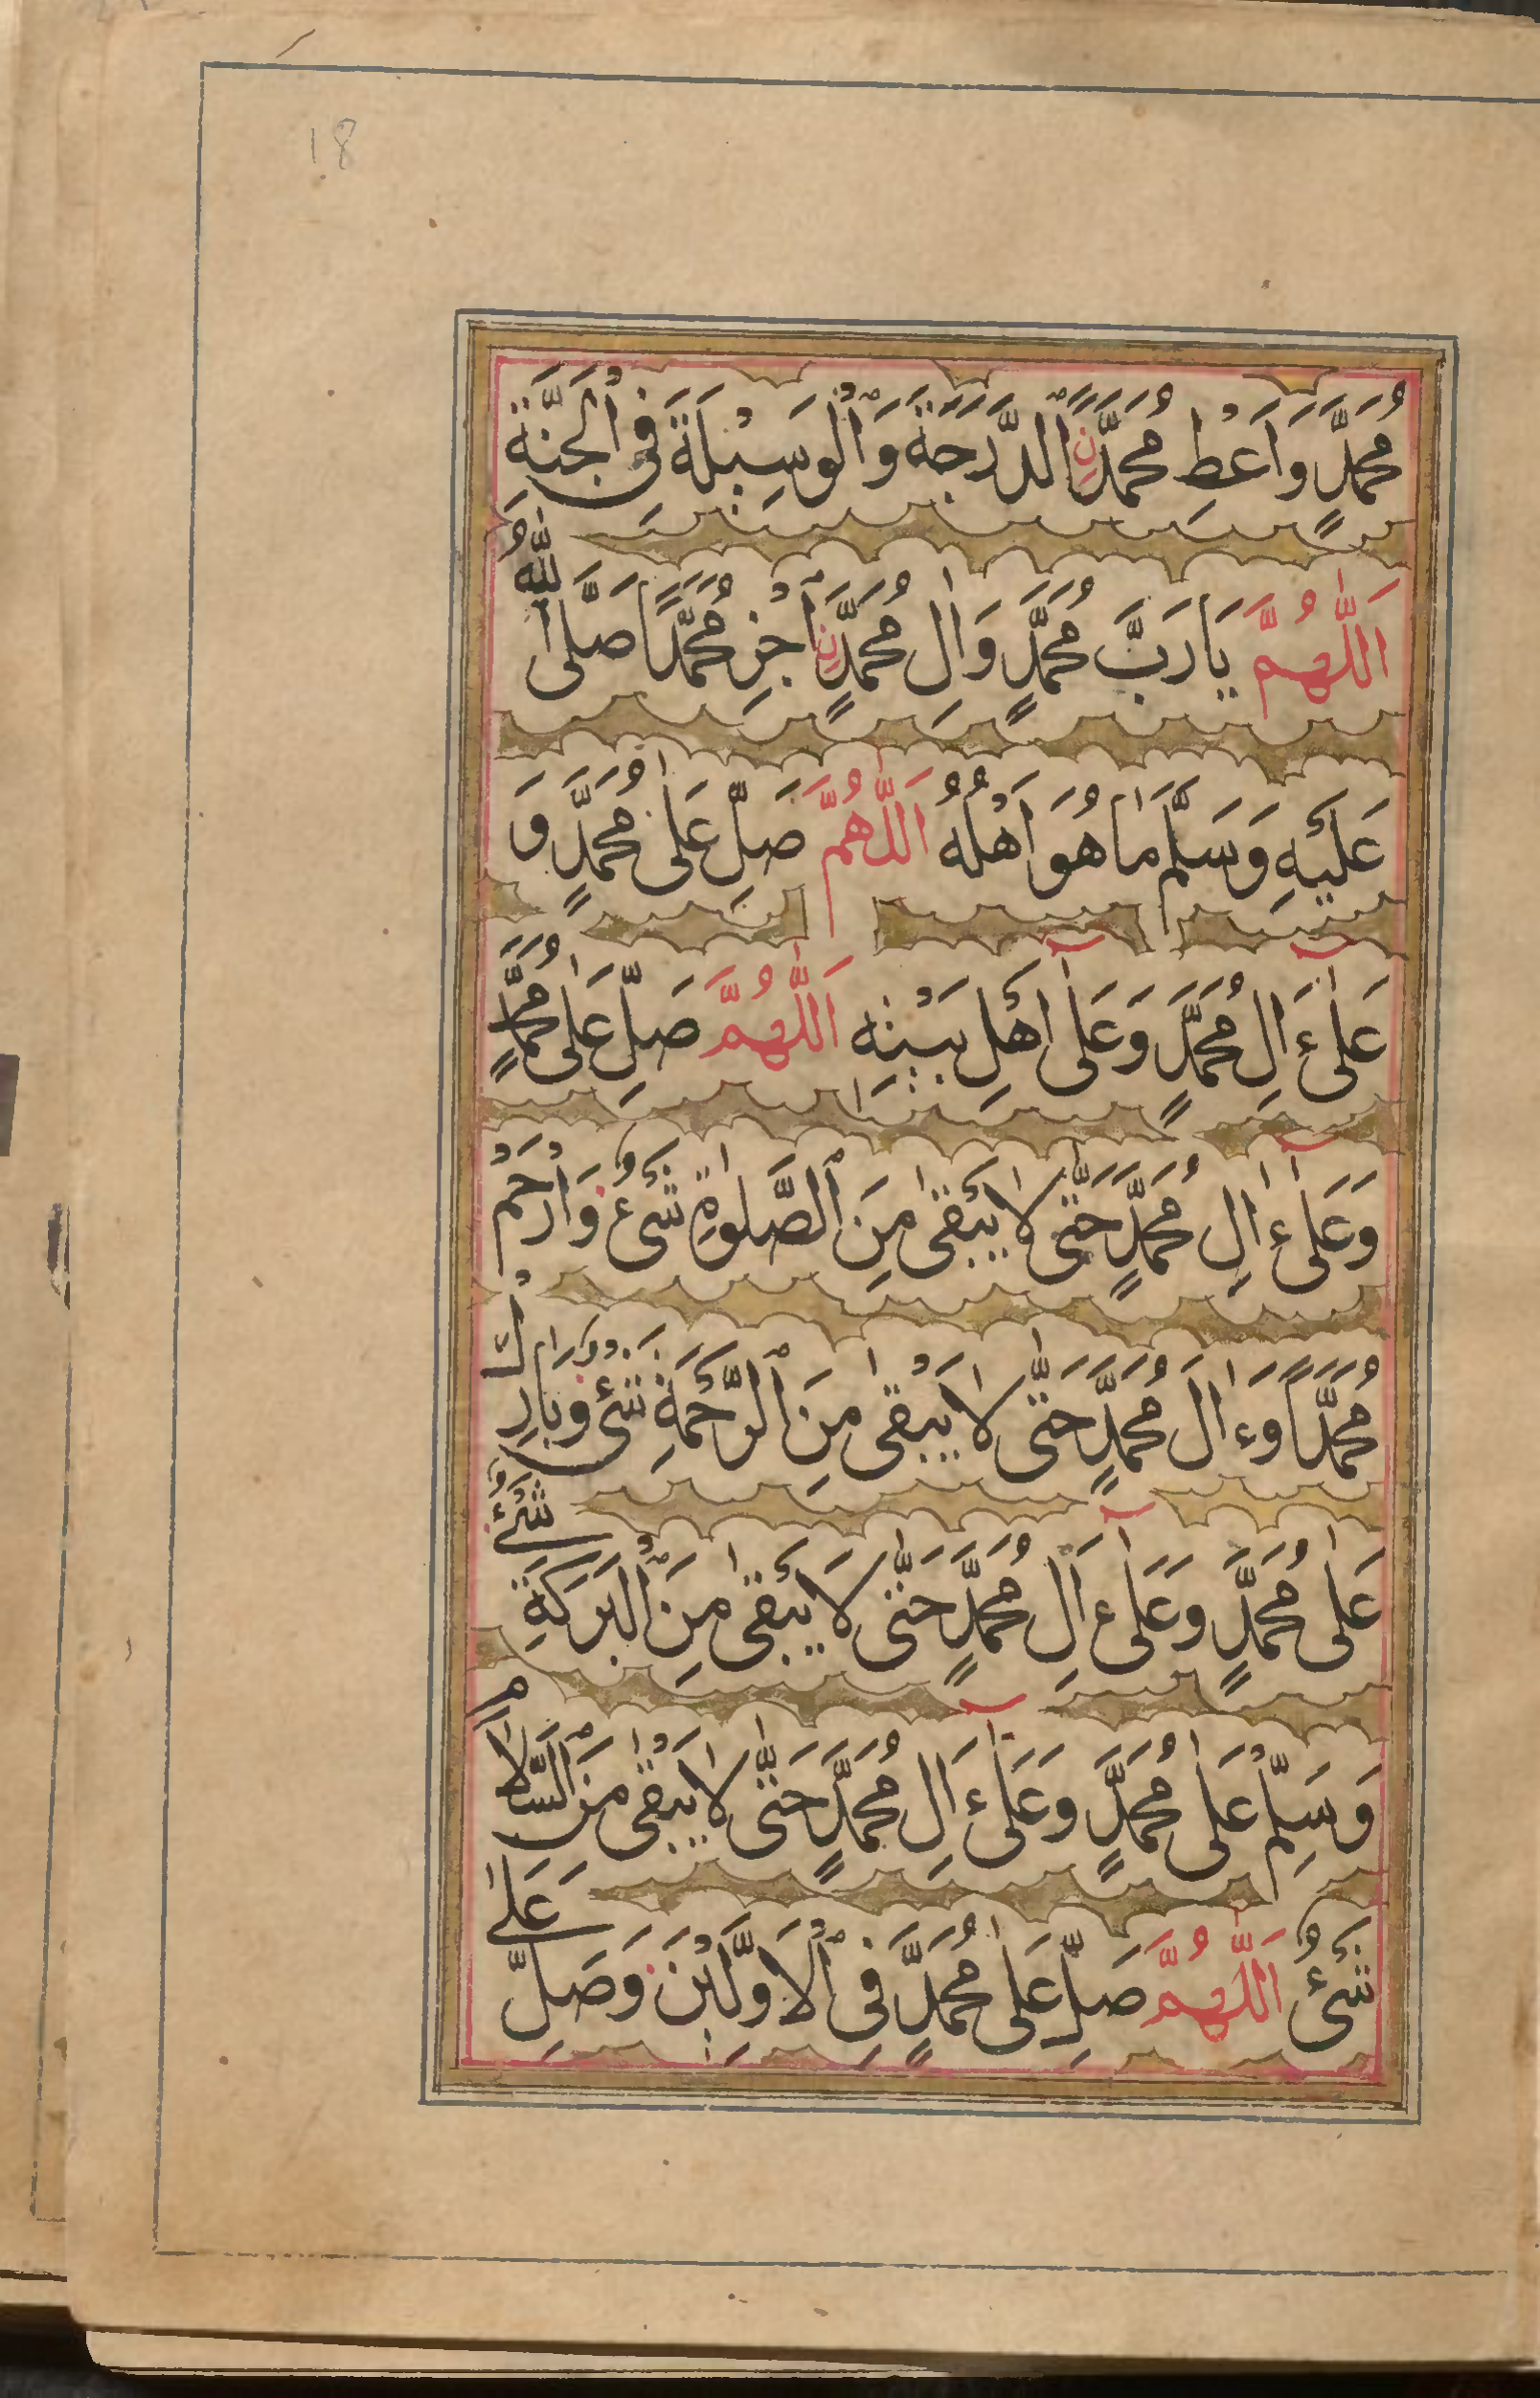 18
مُحَمَّدٍ وَاَعْطِ مُحَمَّدًانِ الدَّرَجَةَ وَالْوَسِيْلَةَ فِي الْجَنَّةِ
اَللّٰهُمَّ يَارَبَّ مُحَمَّدٍ وَاٰلِ مُحَمَّدٍنِ اجْزِ مُحَمَّدًا صَلَّى اللّٰهُ
عَلَيْهِ وَسَلَّمَ مَا هُوَ اَهْلُهُ اَللّٰهُمَّ صَلِّ عَلٰى مُحَمَّدٍ وَ
عَلٰىٓ ءَالِ مُحَمَّدٍ وَعَلٰىٓ اَهْلِ بَيْتِهِ اَللّٰهُمَّ صَلِّ عَلٰى مُحَمَّدٍ
وَعَلٰىٓ ءَالِ مُحَمَّدٍ حَتّٰى لَا يَبْقٰى مِنَ الصَّلٰوةِ شَيْءٌ وَارْحَمْ
مُحَمَّدًا وَءَالَ مُحَمَّدٍ حَتّٰى لَا يَبْقٰى مِنَ الرَّحْمَةِ شَيْءٌ وَبَارِكْ
عَلٰى مُحَمَّدٍ وَعَلٰىٓ ءَالِ مُحَمَّدٍ حَتّٰى لَا يَبْقٰى مِنَ الْبَرَكَةِ شَيْءٌ
وَسَلِّمْ عَلٰى مُحَمَّدٍ وَعَلٰىٓ ءَالِ مُحَمَّدٍ حَتّٰى لَا يَبْقٰى مِنَ السَّلَامِ
شَيْءٌ اَللّٰهُمَّ صَلِّ عَلٰى مُحَمَّدٍ فِي الْاَوَّلِيْنَ وَصَلِّ عَلٰى